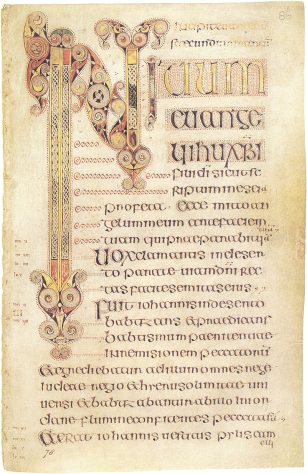 86
secundum
INitium
euange
lii ihu xpi
fili di sicut sc
riptum in esei
profeta ecce mitto an
gelum meum ante faciem
tuam qui praeparabit
uox clamantis in deserto
parate uiam dni rec
tas facite semitas eius
fuit iohannis in deserto
babtizans et praedicans
babtismum paenitentiae
in remisionem peccatorum
et egrediebatur ad illum omnes
iudeae regio et uni
uersi et babtizabantur ab illo in ior
dane flumine confitentes peccata sua
et erat iohannis uestitus pylis cam
76